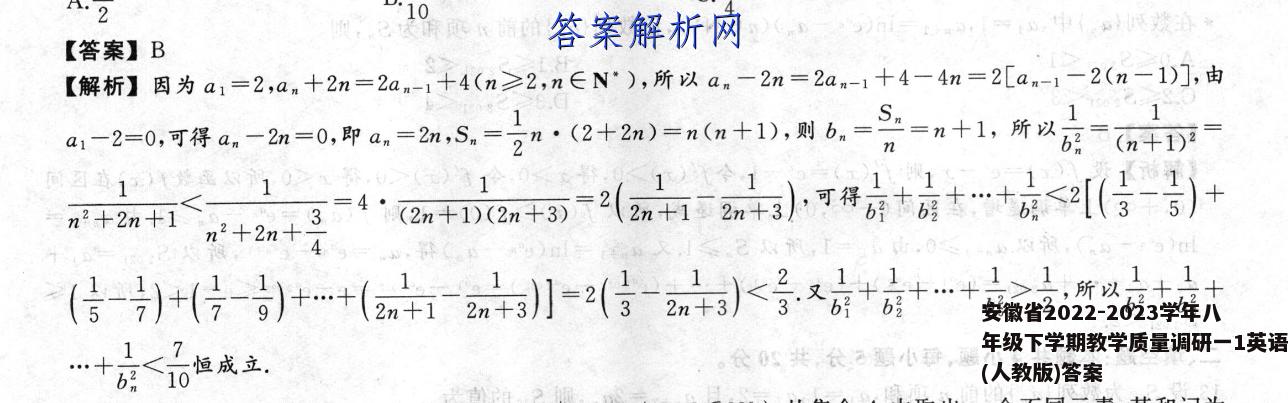 2
10
4
答案解析网
【答案】B
【解析】因为 a₁=2,aₙ+2n=2aₙ₋₁+4(n≥2,n∈N*),所以 aₙ-2n=2aₙ₋₁+4-4n=2[aₙ₋₁-2(n-1)],由
a₁-2=0,可得 aₙ-2n=0,即 aₙ=2n,Sₙ=1/2 n·(2+2n)=n(n+1),则 bₙ=Sₙ/n=n+1, 所以 1/bₙ²=1/(n+1)²=
1/(n²+2n+1)<1/(n²+2n+3/4)=4·1/((2n+1)(2n+3))=2(1/(2n+1)-1/(2n+3)),可得 1/b₁²+1/b₂²+…+1/bₙ²<2[(1/3-1/5)+
(1/5-1/7)+(1/7-1/9)+…+(1/(2n+1)-1/(2n+3))]=2(1/3-1/(2n+3))<2/3.又 1/b₁²+1/b₂²+…+1/ >1/ ,所以 1/b₁²+1/b₂²+
…+1/bₙ²<7/10 恒成立.
安徽省2022-2023学年八
年级下学期教学质量调研一1英语
(人教版)答案